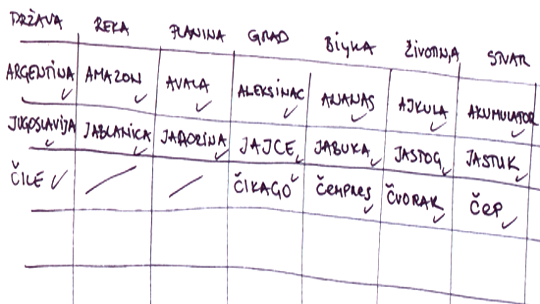 DRŽAVA REKA PLANINA GRAD BILJKA ŽIVOTINJA STVAR
ARGENTINA AMAZON AVALA ALEKSINAC ANANAS AJKULA AKUMULATOR
JUGOSLAVIJA JABLANICA JAHORINA JAJCE JABUKA JASTOG JASTUK
ČILE / / ČIKAGO ČEMPRES ČVORAK ČEP